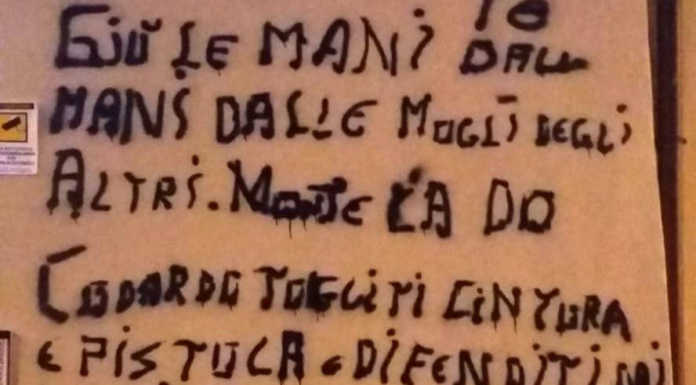 GIÙ LE MANI
MANS DALLE MOGLI DEGLI
ALTRI. LA DO
CODARDO TOGLITI CINTURA
E PISTOLA E DIFENDITI